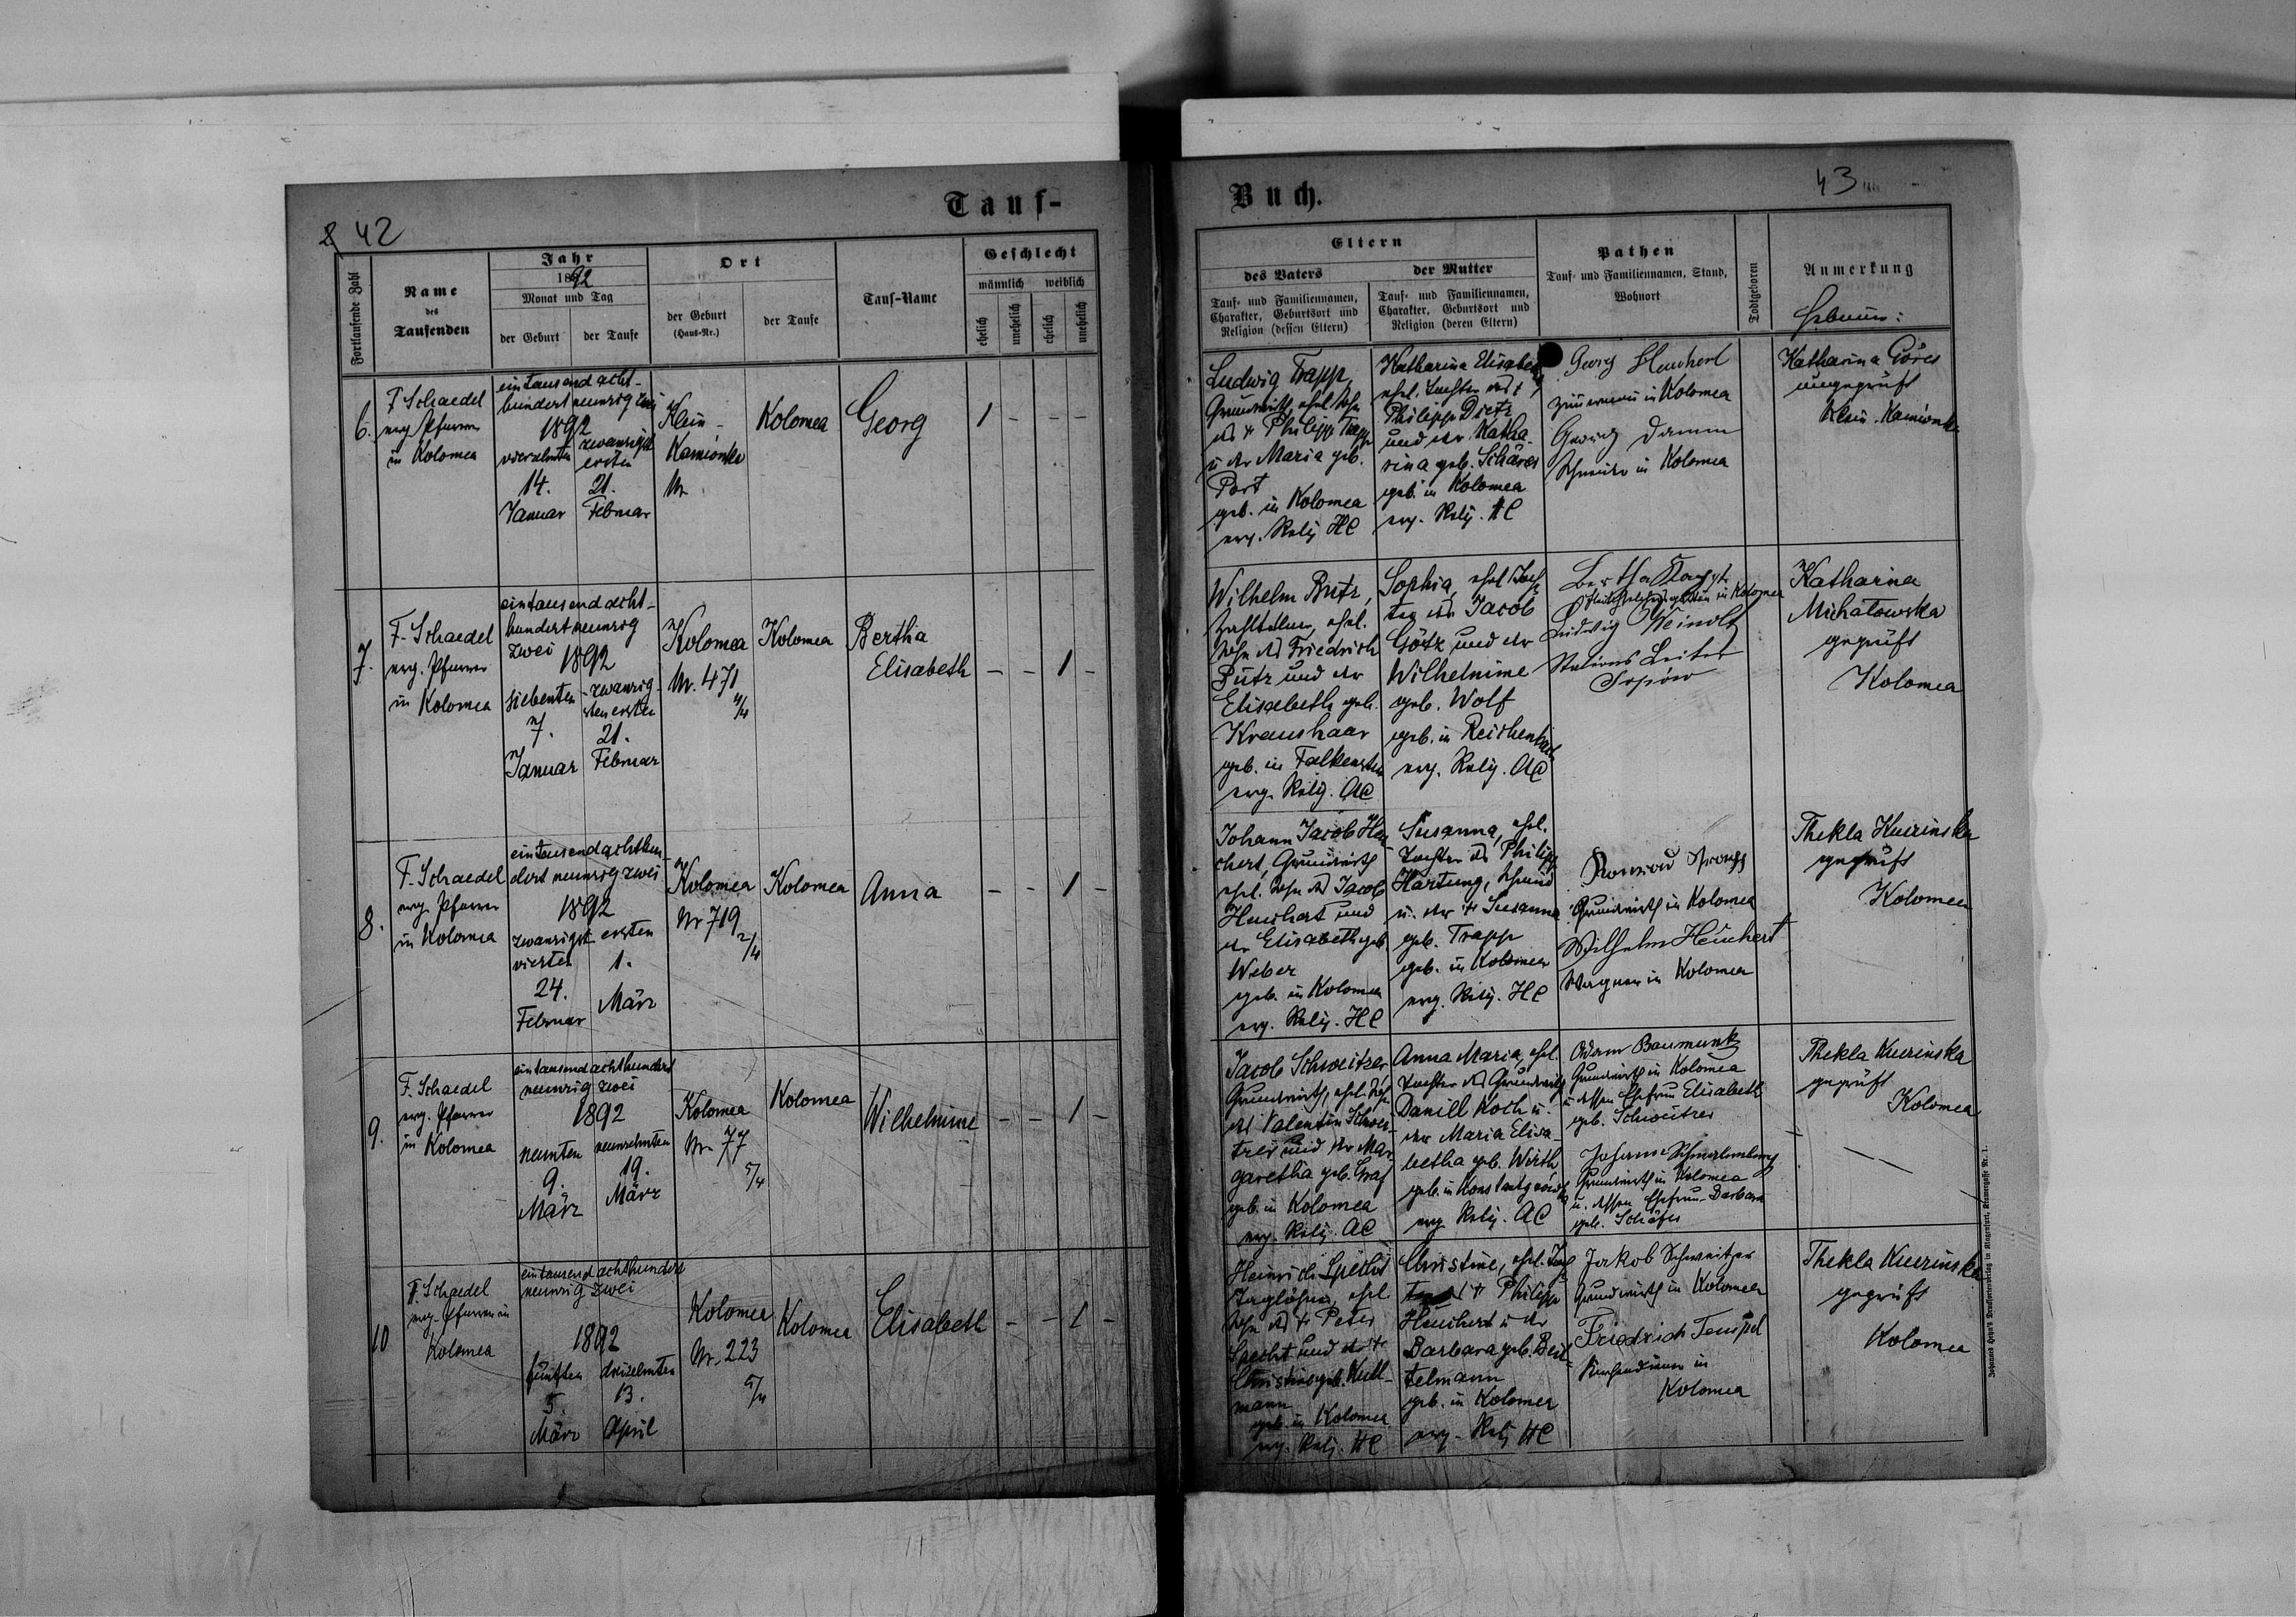 Tauf-
Buch.
42
43
Fortlaufende Zahl
Name
des
Taufenden
Jahr
1892
Monat und Tag
der Geburt
der Taufe
Ort
der Geburt
(Haus-Nr.)
der Taufe
Tauf-Name
Geschlecht
männlich
weiblich
ehelich
unehelich
ehelich
unehelich
Eltern
des Vaters
der Mutter
Tauf- und Familiennamen,
Charakter, Geburtsort und
Religion (dessen Eltern)
Tauf- und Familiennamen,
Charakter, Geburtsort und
Religion (deren Eltern)
Pathen
Tauf- und Familiennamen, Stand,
Wohnort
Todtgeboren
Anmerkung
Hebamme:
6.
F Schaedel
evg. Pfarrer
in Kolomea
ein tausend acht-
hundert neunzig zwei
1892
vierzehnten
14.
Januar
zwanzigst
ersten
21.
Februar
Klein-
Kamionka
Nr
Kolomea
Georg
1 - - -
Ludwig Trapp,
Grundwirth, ehel. Sohn
des + Philipp Trapp
u. der Maria geb.
Port
geb. in Kolomea
evg. Relig HC
Katharina Elisabeth
ehel. Tochter des +
Philipp Dietz
und der Katha-
rina geb. Schäres
geb. in Kolomea
evg. Relig. HC
Georg Heuchert
Zimmermann in Kolomea
Georg Damm
Schneider in Kolomea
Katharina Göres
ungeprüft
Klein-Kamionka
7.
F. Schaedel
evg. Pfarrer
in Kolomea
ein tausend acht-
hundert neunzig
zwei
1892
siebenten
7.
Januar
zwanzig-
sten ersten
21.
Februar
Kolomea
Nr. 471
4/4
Kolomea
Bertha
Elisabeth
- - 1 -
Wilhelm Butz,
Zahlkellner, ehel.
Sohn des Friedrich
Butz und der
Elisabeth geb.
Kraushaar
geb. in Falkenstein
evg. Relig. AC
Sophia, ehel Toch-
ter des Jacob
Götz und der
Wilhelmine
geb. Wolf
geb. in Reichenbach
evg. Relig. AC
Ludwig Weinolt
Stations Leiter
Sopów
Katharina
Michatowska
geprüft
Kolomea
8.
F. Schaedel
evg. Pfarrer
in Kolomea
ein tausend achthun-
dert neunzig zwei
1892
zwanzigst
vierten
24.
Februar
ersten
1.
März
Kolomea
Nr 719
2/4
Kolomea
Anna
- - 1 -
Johann Jacob Heu-
chert, Grundwirth
ehel. Sohn des Jacob
Heuchert und
der Elisabeth geb.
Weber
geb. in Kolomea
evg. Relig. HC
Susanna, ehel.
Tochter des Philipp
Hartung, Schmied
u. der + Susanna
geb. Trapp
geb. in Kolomea
evg. Relig. HC
Grundwirth in Kolomea
Wilhelm Heuchert
Wagner in Kolomea
Thekla Kuczinska
geprüft
Kolomea
9.
F. Schaedel
evg. Pfarrer
in Kolomea
ein tausend achthundert
neunzig zwei
1892
neunten
9.
März
neunzehnten
19.
März
Kolomea
Nr. 77
5/4
Kolomea
Wilhelmine
- - 1 -
Jacob Schweitzer
Grundwirth, ehel. Sohn
des Valentin Schwei-
tzer und der Mar-
garetha geb. Graf
geb. in Kolomea
evg. Relig. AC
Anna Maria, ehel.
Tochter des Grundwirth
Daniel Koch u.
der Maria Elisa-
betha geb. Wirth
geb. in
evg Relig. AC
Adam Baumunk
Grundwirth in Kolomea
u. dessen Ehefrau Elisabeth
geb. Schweitzer
Johann
Grundwirth in Kolomea
u. dessen Ehefrau Barbara
geb. Schäfer
Thekla Kuczinska
geprüft
Kolomea
10
F. Schaedel
evg. Pfarrer in
Kolomea
ein tausend achthundert
neunzig zwei
1892
fünften
5.
März
dreizehnten
13.
April
Kolomea
Nr. 223
5/4
Kolomea
Elisabeth
- - 1 -
Heinrich Specht
Taglöhner, ehel
Sohn des + Peter
Specht und der +
Christine geb. Kull-
mann
geb. in Kolomea
evg. Relig. HC
Christine, ehel. Toch-
ter des + Philipp
Heuchert u der
Barbara geb. Beit-
telmann
geb. in Kolomea
evg. Relig HC
Jakob Schweitzer
Grundwirth in Kolomea
Friedrich Tempel
Kirchendiener in
Kolomea
Thekla Kuczinska
geprüft
Kolomea